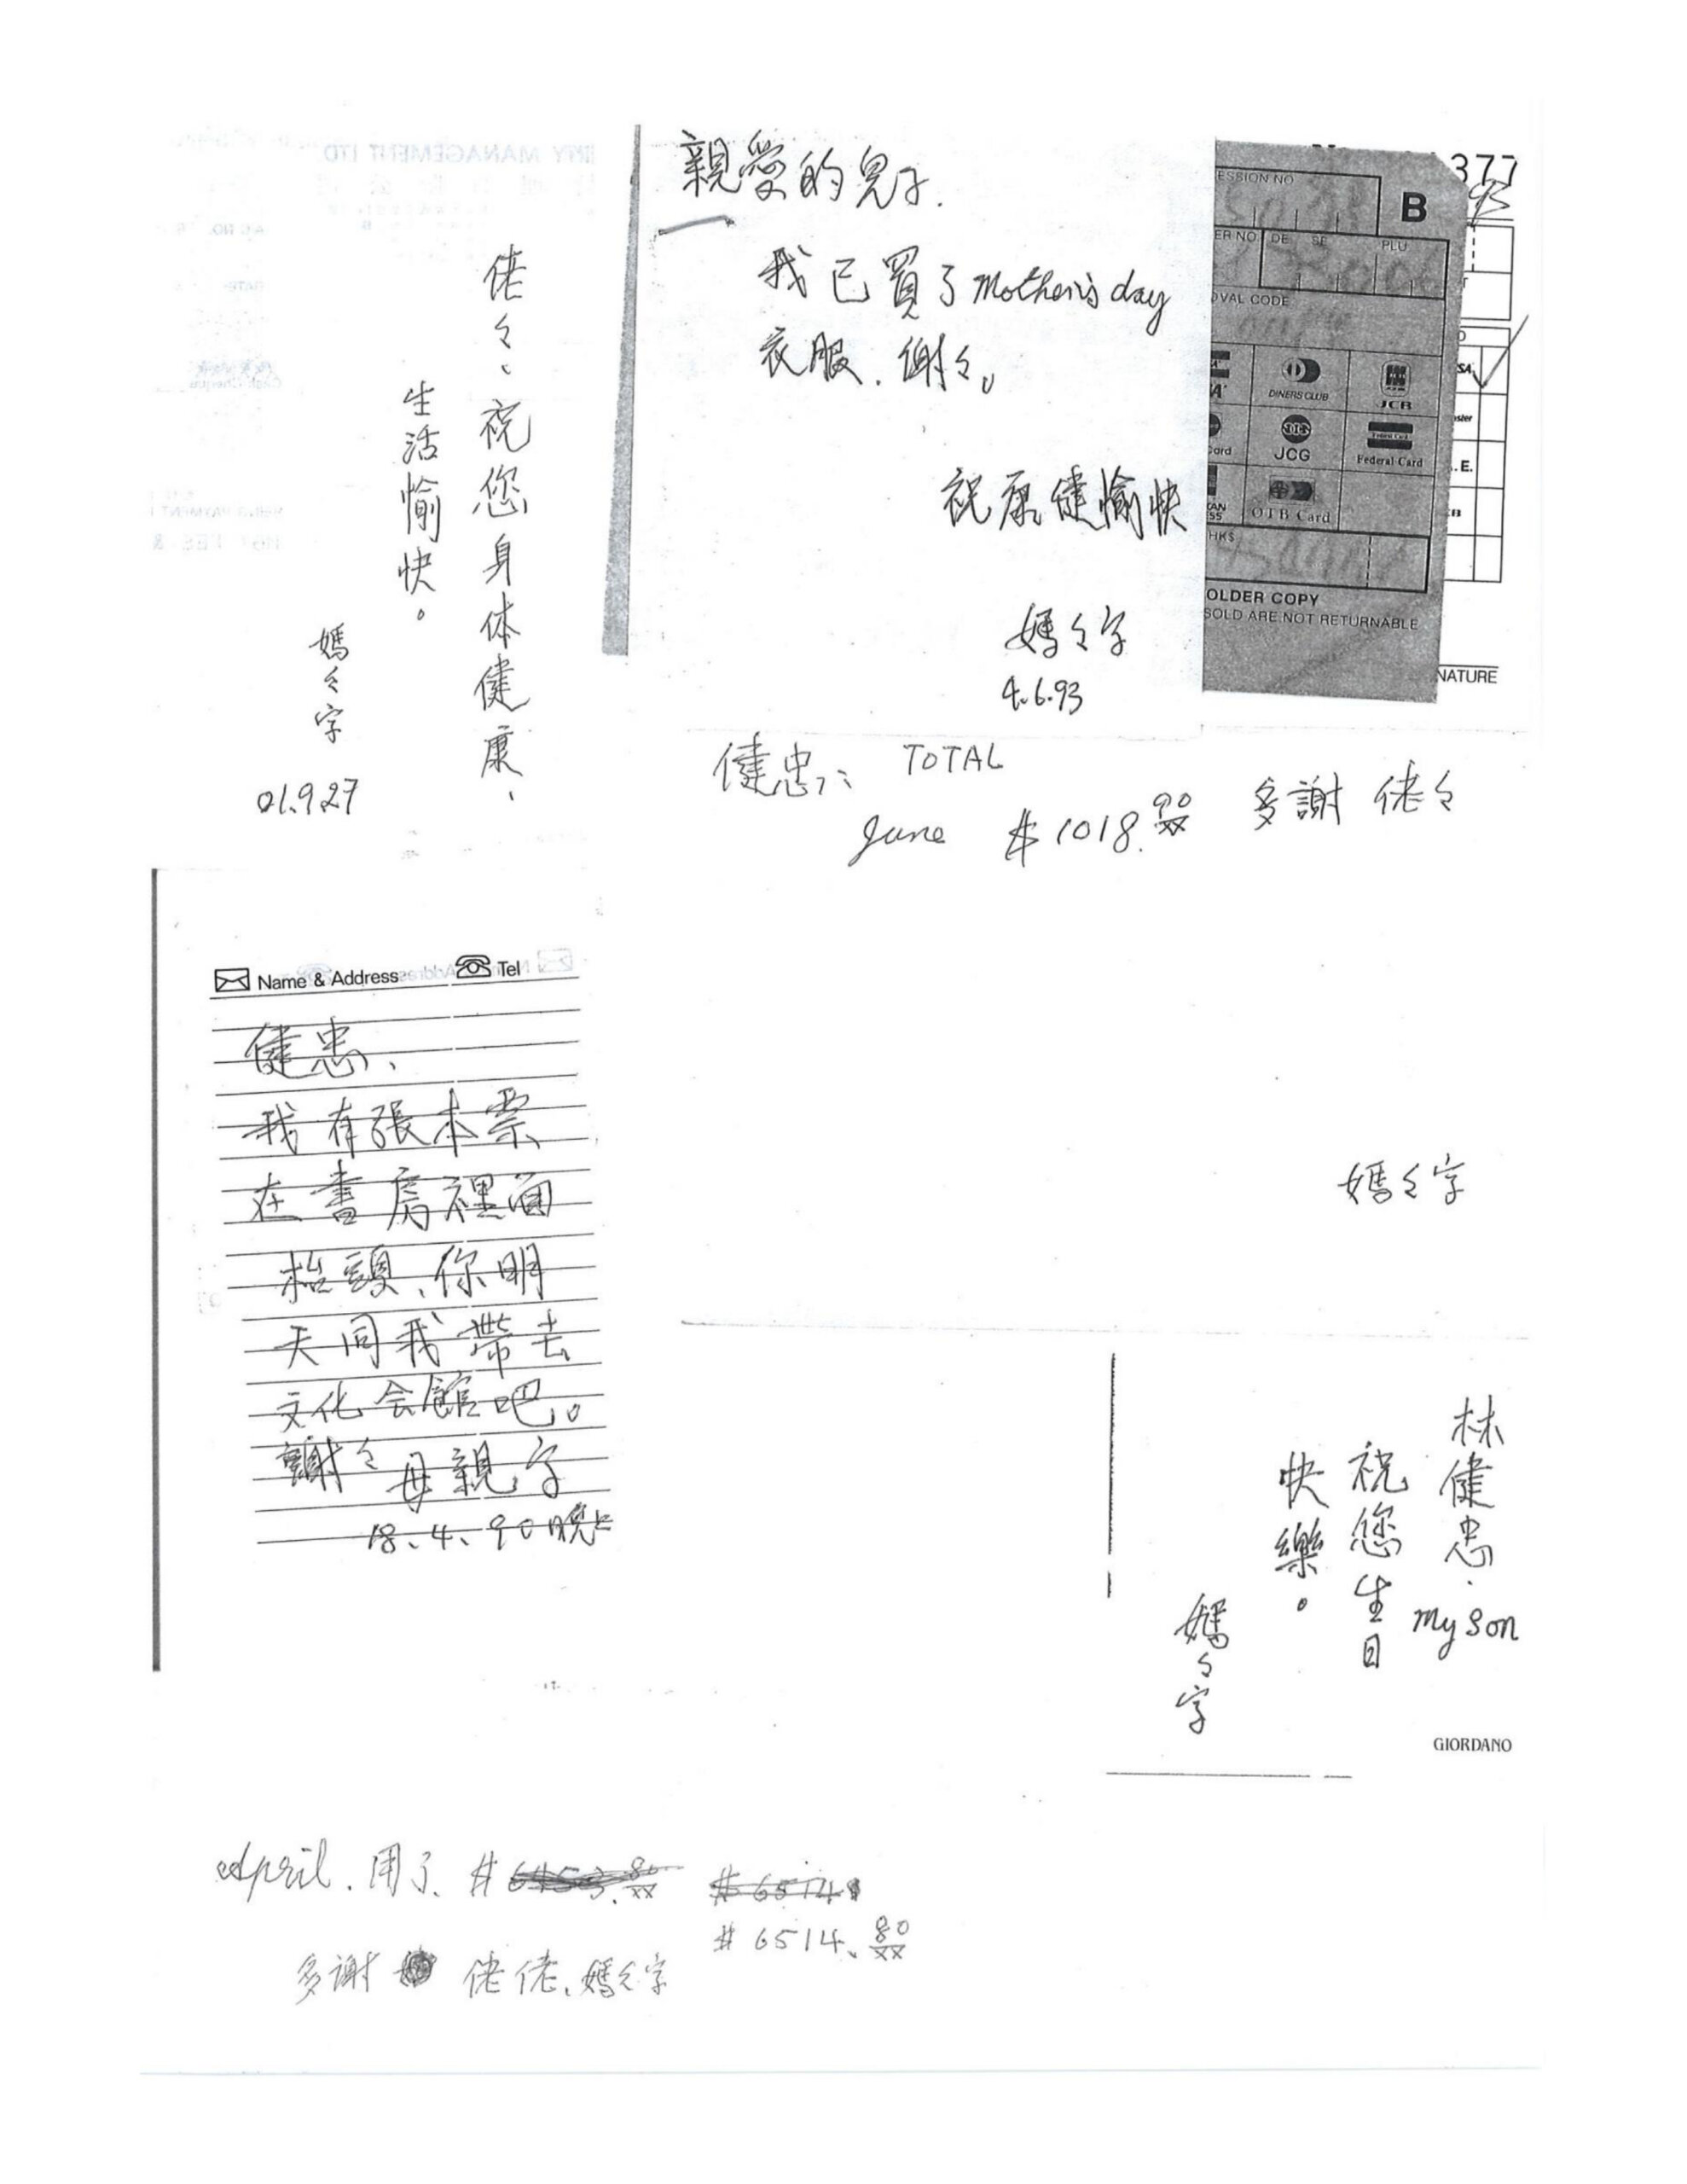 佬々、祝您身体健康、
生活愉快。
媽々字
01.9.27
親愛的兒子.
我已買了 Mother's day
衣服.謝々。
祝康健愉快
媽々字
4.6.93
377
ESSION NO
B
ER NO.
DE
SE
PLU
OVAL CODE
DINERS CLUB
JCB
Card
JCG
Federal Card
OTB Card
HK$
OLDER COPY
SOLD ARE NOT RETURNABLE
NATURE
健忠:: TOTAL
June $1018.90/xx 多謝 佬々
媽々字
Name & Address Tel
健忠、
我有張本票
在書房裡面
枱頭、你明
天同我帶去
文化会館吧。
謝々 母親字
18.4.90晚上
林健忠.
My Son
祝您生日
快樂。
媽々字
GIORDANO
April.用了. $6453.80/xx $6514
$6514.80/xx
多謝 佬佬.媽々字